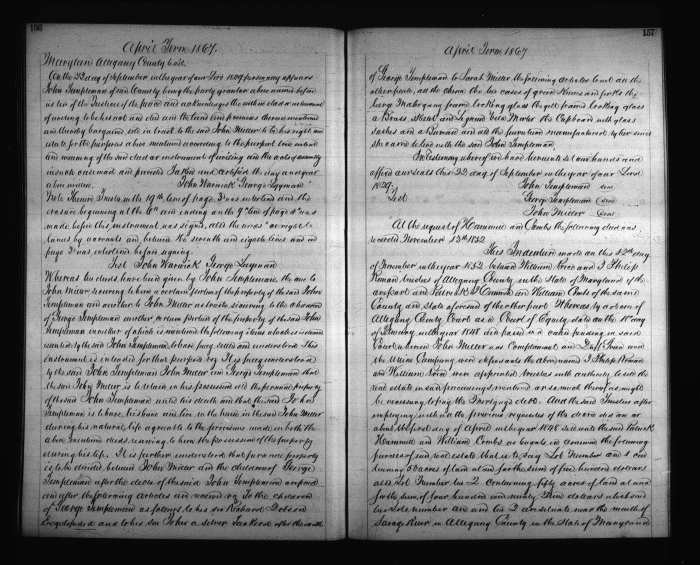 156
April Term 1867.
Maryland Allegany County to wit.
On the 22 day of September in the year of our Lord 1829 personally appears
John Templeman of said County being the party grantor above named before
us two of the Justices of the peace and acknowledges the within deed or instrument
of writing to be his act and deed and the land and premises therein mentioned
and thereby bargained sold to be to the said John Miller to be his right and
estate for the purposes above mentioned according to the purport true intent
and meaning of the said deed or instrument of writing and the acts of assembly
in such case made and provided Taken and certified the day and year
above written. John Warnick George Layman
Note the words on the 19th line of page 3 was interlined and the
erasure beginning at the 6th and ending on the 9th line of page 4 was
made before this instrument was signed, also the words "or right
before signing.
Test John Warnick George Layman
Whereas two deeds have been given by John Templeman, the one to
John Miller securing to him a certain portion of the property of the said John
Templeman and another to John Miller as trustee securing to the children
of George Templeman another certain portion of the property of the said John
Templeman in either of which is mentioned the following items which is
by the said John Templeman to have full settled and understood. This
instrument is intended for that purpose viz It is fully understood
by the said John Templeman John Miller and George Templeman that
the said John Miller is to retain in his possession all the personal property
of the said John Templeman until his death and that the said John
Templeman is to have his home and live in the house in the said John Miller
during his natural life agreeable to the provisions made in both the
above mentioned deeds securing to him the possession of the property
during his life. It is further understood that
is to be divided between John Miller and the children of George
Templeman after the death of the said John Templeman
and after the following articles are received viz To the children
of George Templeman as follows to his son Richard Dobson
and to his son John a silver Tankard after the death
157
April Term 1867
of George Templeman to Sarah Miller the following articles to wit all the
silver, all the china the two cases of green knives and forks the
large Mahogany framed looking glass the gilt framed looking glass
a Brass and the Cupboard with glass
sashes and a Bureau and all the furniture by her since
she came to live with the said John Templeman.
In testimony whereof we have hereunto set our hands and
affixed our seals this 22 day of September in the year of our Lord
1829. John Templeman seal
Test George Templeman seal
John Miller seal
At the request of Hammill and Combs the following deed was
recorded November 13th 1852
This Indenture made on this 12th day
of November in the year 1852 between William Price and J Philip
Roman trustees of Allegany County in the State of Maryland of the
one part and Patrick Hammill and William Combs of the same
County and State aforesaid of the other part Whereas by a decree of
Allegany County Court as a Court of Equity dated on the 10 day
of in the year 1848 and passed in a cause pending in said
Court wherein John Miller was Complainant and
the Union Company were defendants the above named J Philip Roman
and William Price were appointed trustees with authority to sell the
real estate in said proceedings mentioned or so much thereof as might
be necessary to pay the Mortgage debt. And the said Trustees after
complying with all the previous requisites of the decree did on or
about the first day of April in the year 1848 sell unto the said Patrick
Hammill and William Combs as tenants in common the following
parcels of said real estate that is to say Lot Number one 1 con
taining 50 acres of land at and for the sum of five hundred dollars
also Lot Number two 2 Containing fifty acres of land at and
for the sum of four hundred and ninety Five dollars which said
two Lots number one and two 2 are situate near the mouth of
Savage River in Allegany County in the State of Maryland